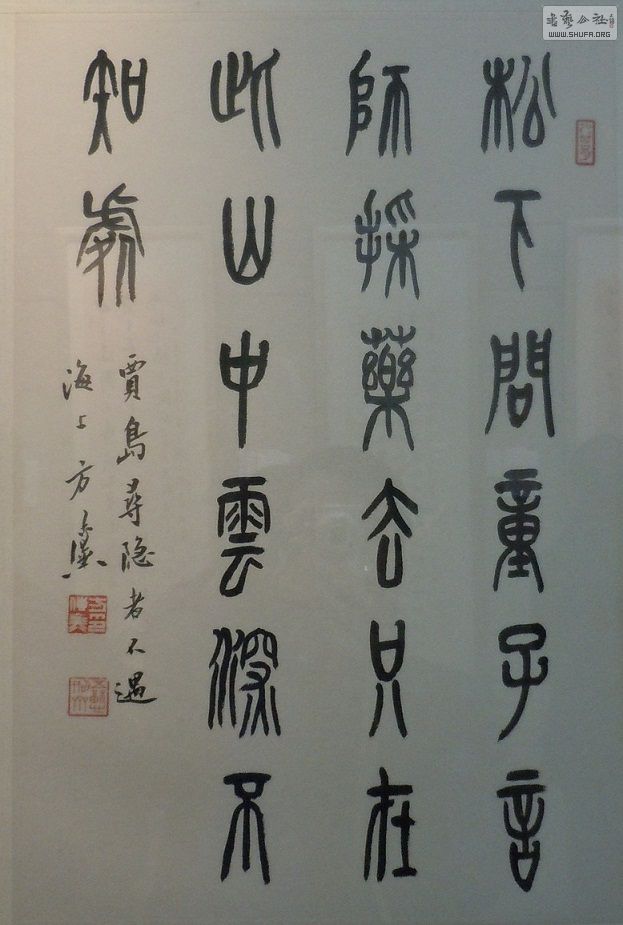 松下問童子言
師採藥去只在
此山中雲深不
知處
賈島尋隐者不遇
海上方
书艺公社
WWW.SHUFA.ORG